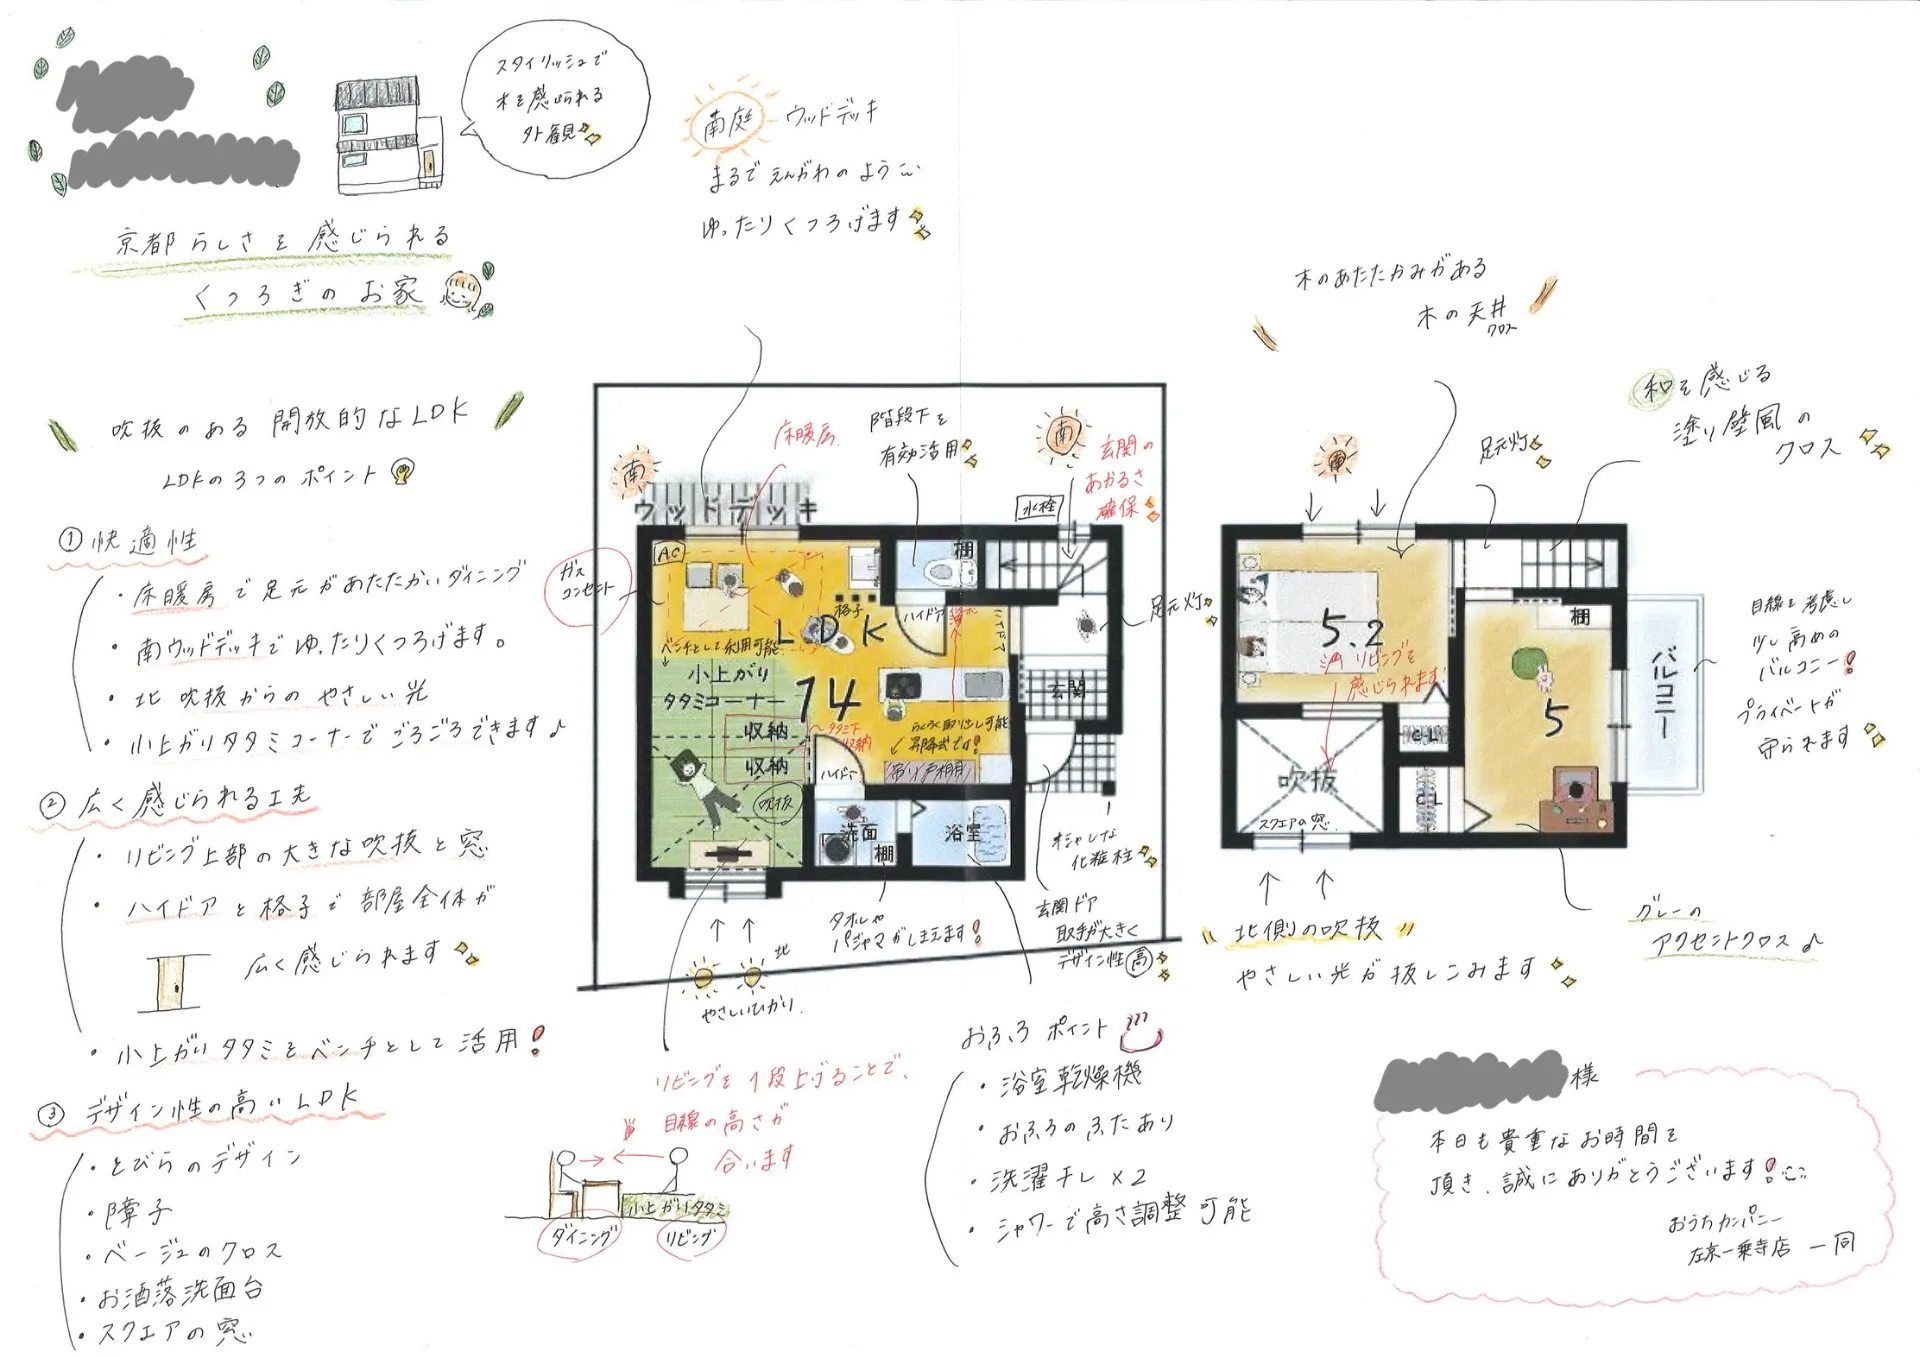 スタイリッシュで
木を感じられる
外観
京都らしさを感じられる
くつろぎのお家
南庭 ウッドデッキ
まるでえんがわのように
ゆったりくつろげます
木のあたたかみがある
木の天井
クロス
和を感じる
塗り壁風の
クロス
吹抜のある開放的なLDK
LDKの3つのポイント
① 快適性
・床暖房で足元があたたかいダイニング
・南ウッドデッキでゆったりくつろげます。
・北 吹抜からのやさしい光
・小上がりタタミコーナーでごろごろできます♪
② 広く感じられる工夫
・リビング上部の大きな吹抜と窓
・ハイドアと格子で部屋全体が
広く感じられます
・小上がりタタミをベンチとして活用!
③ デザイン性の高いLDK
・とびらのデザイン
・障子
・ベージュのクロス
・お洒落洗面台
・スクエアの窓
南
床暖房
階段下を
有効活用
南
玄関の
あかるさ
確保
水栓
ウッドデッキ
AC
ガス
コンセント
棚
格子
ハイドア
ハイドア
足元灯
LDK
14
ベンチとして利用可能
小上がり
タタミコーナー
収納
収納
タタミ下
収納
らくらく取り出し可能
昇降式です!
吊り戸棚
玄関
ハイドア
吹抜
洗面
棚
浴室
オシャレな
化粧柱
玄関ドア
取手が大きく
デザイン性高
タオルや
パジャマがしまえます!
北
やさしいひかり
リビングを1段上げることで、
目線の高さが
合います
小上がりタタミ
ダイニング
リビング
おふろポイント
・浴室乾燥機
・おふろのふたあり
・洗濯干し×2
・シャワーで高さ調整可能
南
足元灯
5.2
リビングを
感じられます!
吹抜
スクエアの窓
CL
CL
棚
5
バルコニー
目線を考慮し
少し高めの
バルコニー!
プライベートが
守られます
グレーの
アクセントクロス♪
北側の吹抜
やさしい光が抜しこみます
様
本日も貴重なお時間を
頂き、誠にありがとうございます!
おうちカンパニー
左京一乗寺店 一同